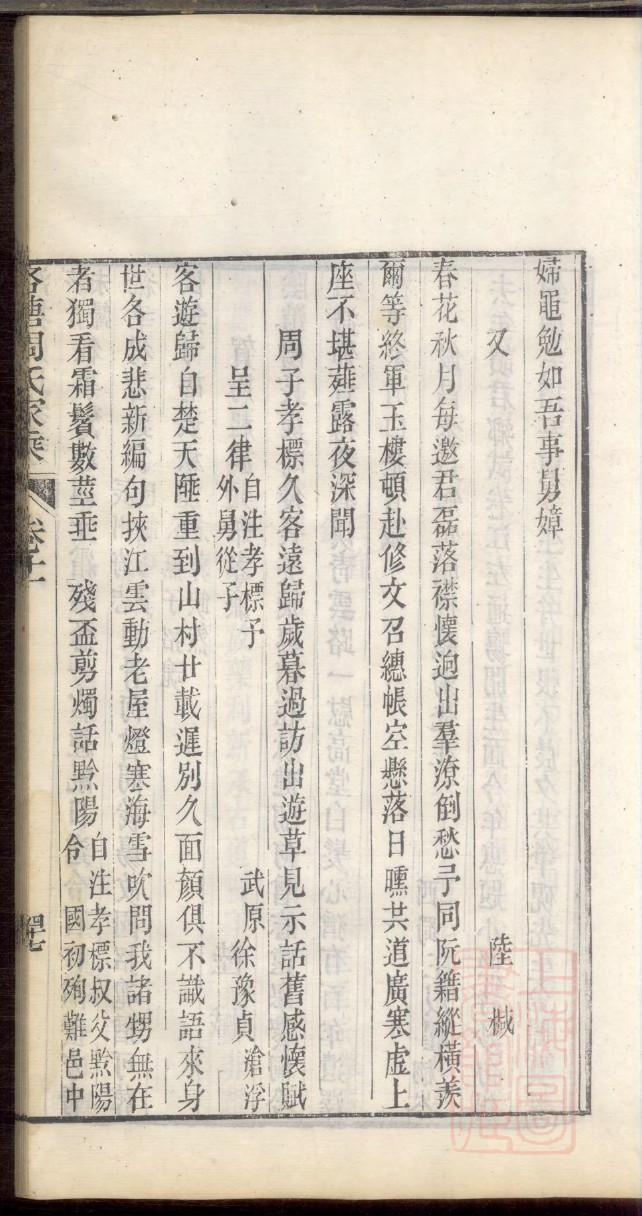 婦黽勉如吾事舅嫜
又　陸棫
春花秋月每邀君磊落襟懷迥出羣潦倒愁予同阮籍縱橫羨
爾等終軍玉樓頓赴修文召繐帳空懸落日曛共道廣寒虛上
座不堪薤露夜深聞
周子孝標久客遠歸歲暮過訪出遊草見示話舊感懷賦
呈二律自注孝標予外舅從子　武原徐豫貞滄浮
客遊歸自楚天陲重到山村廿載遲別久面顏俱不識語來身
世各成悲新編句挾江雲動老屋燈寒海雪吹問我諸甥無在
者獨看霜鬢數莖垂　殘盃剪燭話黔陽自注孝標叔父黔陽令國初殉難邑中
洛塘周氏家乘　卷十一